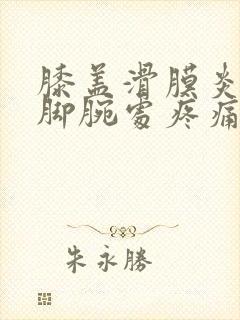 膝盖滑膜炎
脚腕處疼痛
朱永勝